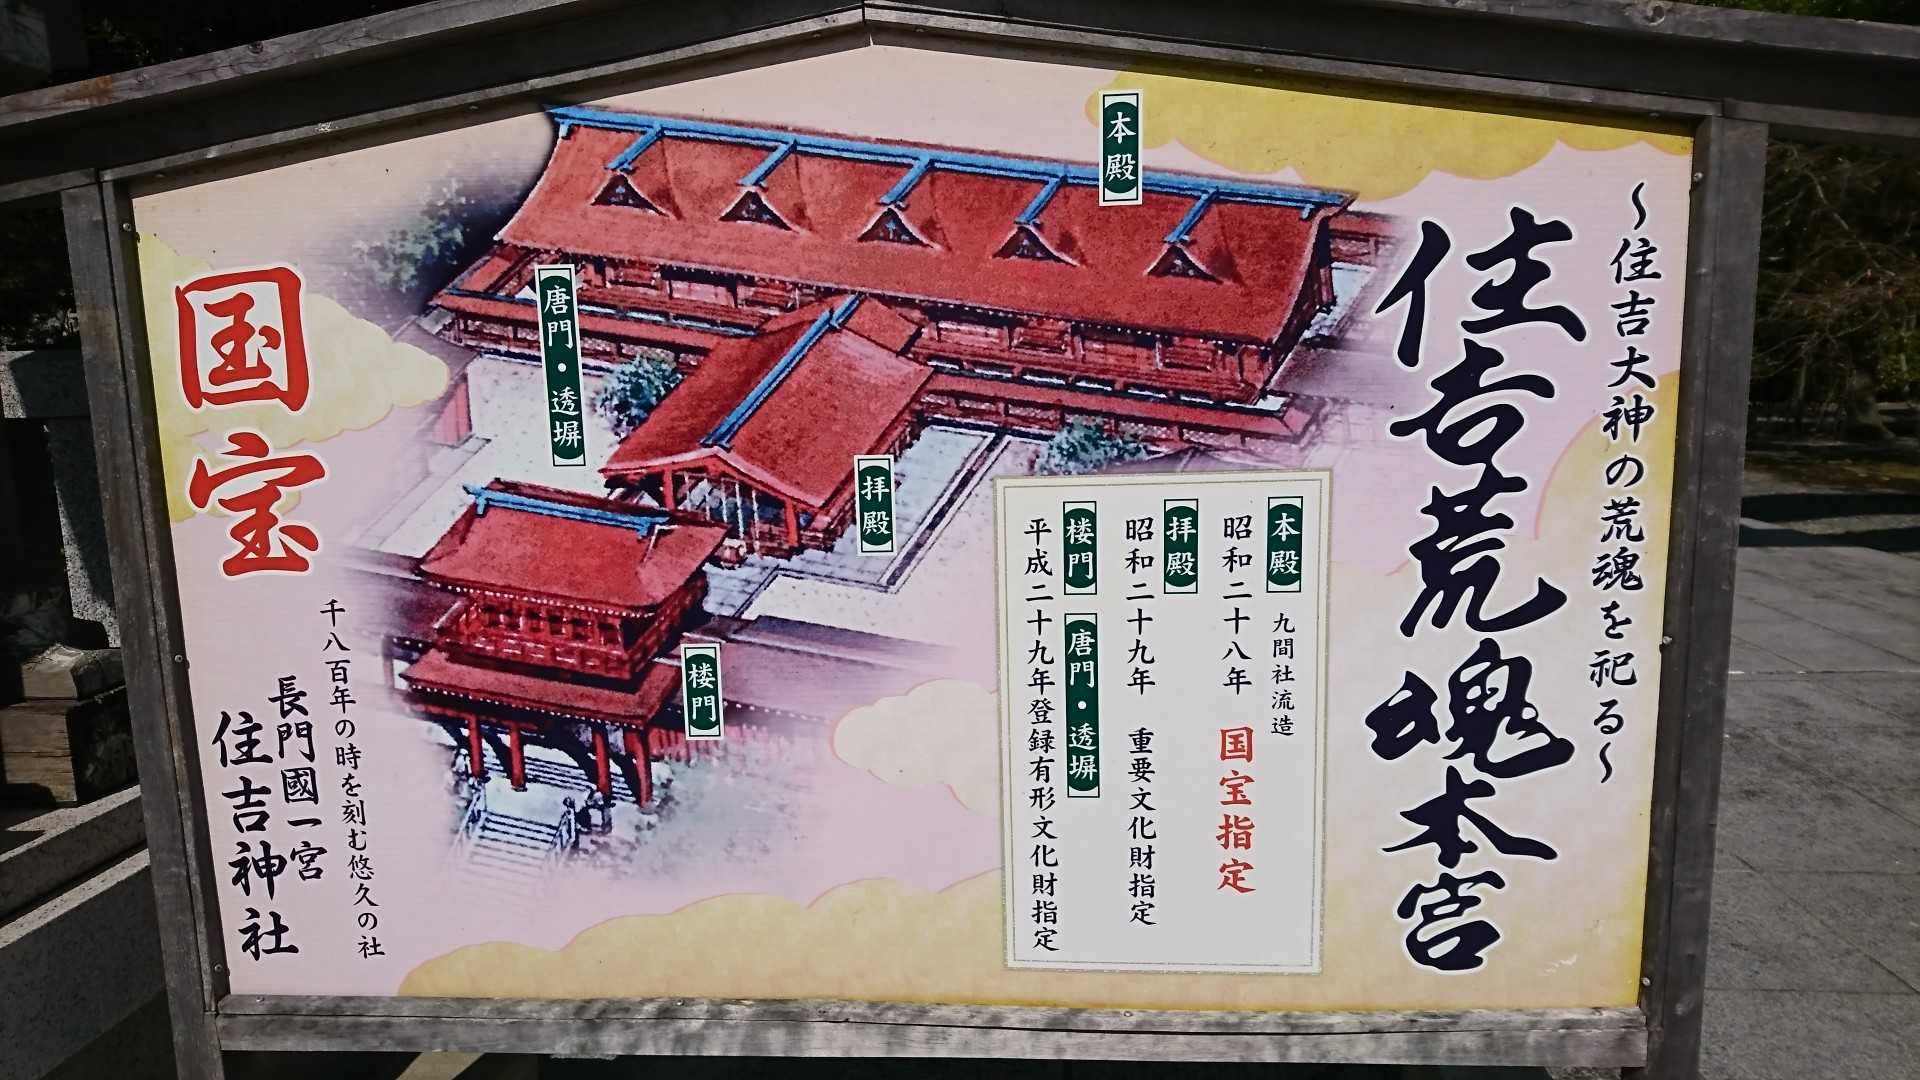 ～住吉大神の荒魂を祀る～
住吉荒魂本宮
本殿
唐門・透塀
拝殿
楼門
本殿 九間社流造
昭和二十八年 国宝指定
拝殿
昭和二十九年 重要文化財指定
楼門 唐門・透塀
平成二十九年登録有形文化財指定
国宝
千八百年の時を刻む悠久の社
長門國一宮
住吉神社